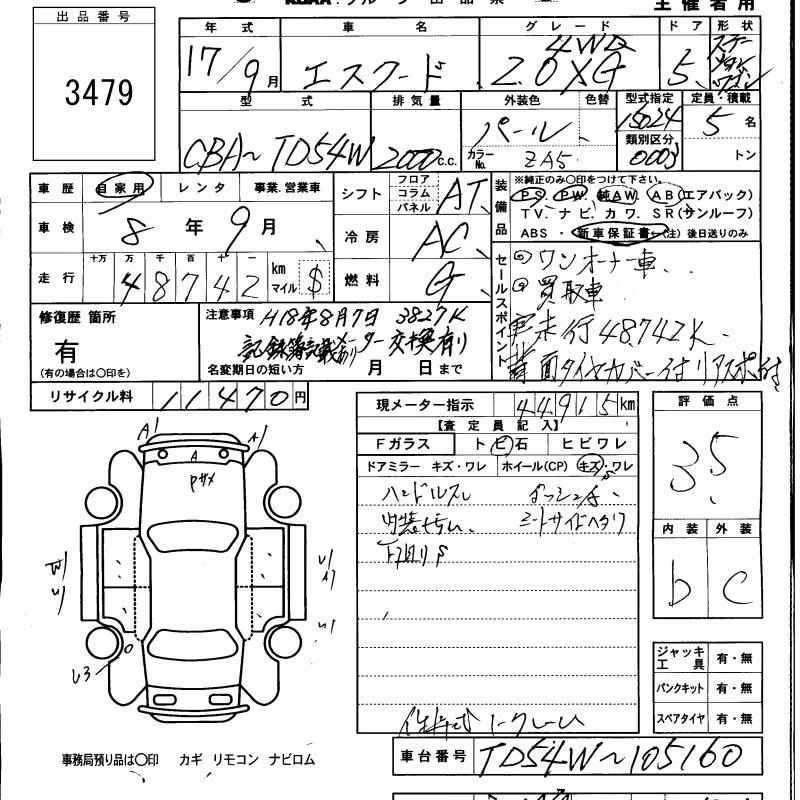 主催者用
出品番号
3479
年式 車名 グレード ドア 形状
17/9月 エスクード 4WD 2.0XG 5 ステーションワゴン
型式 排気量 外装色 色替 型式指定 定員・積載
CBA~TD54W 2000c.c. パール 15024 5名
カラーNo. ZA5 類別区分 0003 トン
車歴 自家用 レンタ 事業.営業車
シフト フロア コラム パネル AT
装備品 ※純正のみ〇印をつけて下さい。
PS. PW. 純AW. AB(エアバック)
TV. ナビ. カワ. SR(サンルーフ)
ABS ・ 新車保証書←(注)後日送りのみ
車検 8年9月
冷房 AC
走行 十万 万 千 百 十 一
48742 km マイル $
燃料 G
セールスポイント ◎ワンオーナー車
◎買取車
実走行48742K
背面タイヤカバー付リアスポ付
修復歴 箇所
有
(有の場合は〇印を)
注意事項 H18年8月7日 3827K
記録簿記載有り メーター交換有り
名変期日の短い方 月 日まで
リサイクル料 11470円
現メーター指示 44915km
【査定員記入】
Fガラス トビ石 ヒビワレ
ドアミラー キズ・ワレ ホイール(CP) キズ・ワレ
ハンドルスレ
シートサイドヘタリ
下廻りS
評価点
3.5
内装 外装
b C
A1 A1
A
Pサメ
W1
U1
U1
A1
U1
U3
ジャッキ工具 有・無
パンクキット 有・無
スペアタイヤ 有・無
車台番号 TD54W~105160
事務局預り品は〇印 カギ リモコン ナビロム